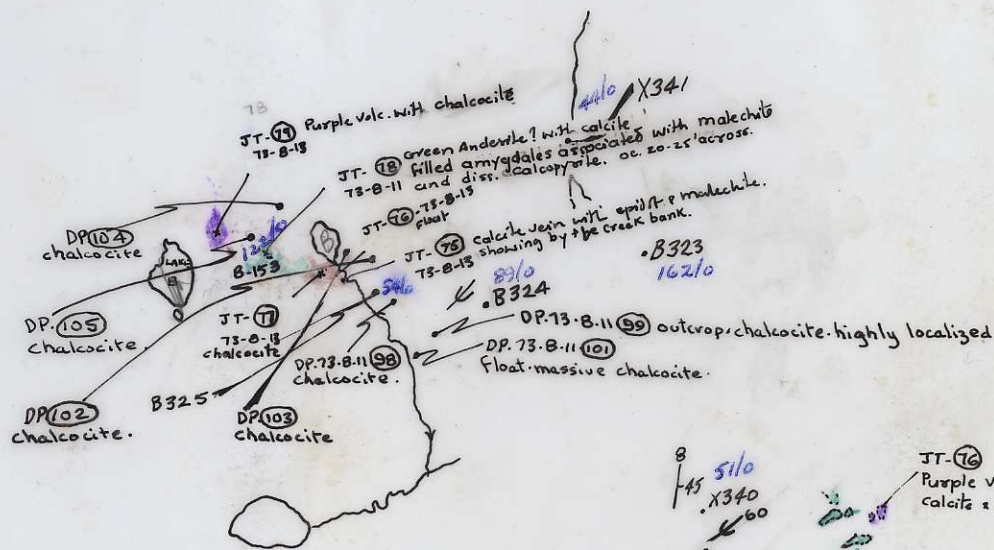 78
JT-79 Purple volc. with chalcocite
73-8-13
44/0
X341
JT-78 Green Andesite? with calcite
73-8-11 filled amygdales associated with malechite
and diss. calcopyrite. oc. 20-25' across.
JT-76-73-8-13
Float
JT-75 Calcite vein with epidot & malechite.
73-8-13 showing by the creek bank.
DP.104
chalcocite
122/0
B-153
LAKE
B323
162/0
89/0
B324
54/0
DP.105
Chalcocite.
JT-77
73-8-13
chalcocite
DP.73-8-11 99 outcrop. chalcocite. highly localized
DP.73-8-11 101
Float. massive chalcocite.
DP.73-8-11 98
chalcocite.
B325
DP 102
chalcocite.
DP 103
chalcocite
8
45
51/0
X340
60
JT-76
Purple v
Calcite &